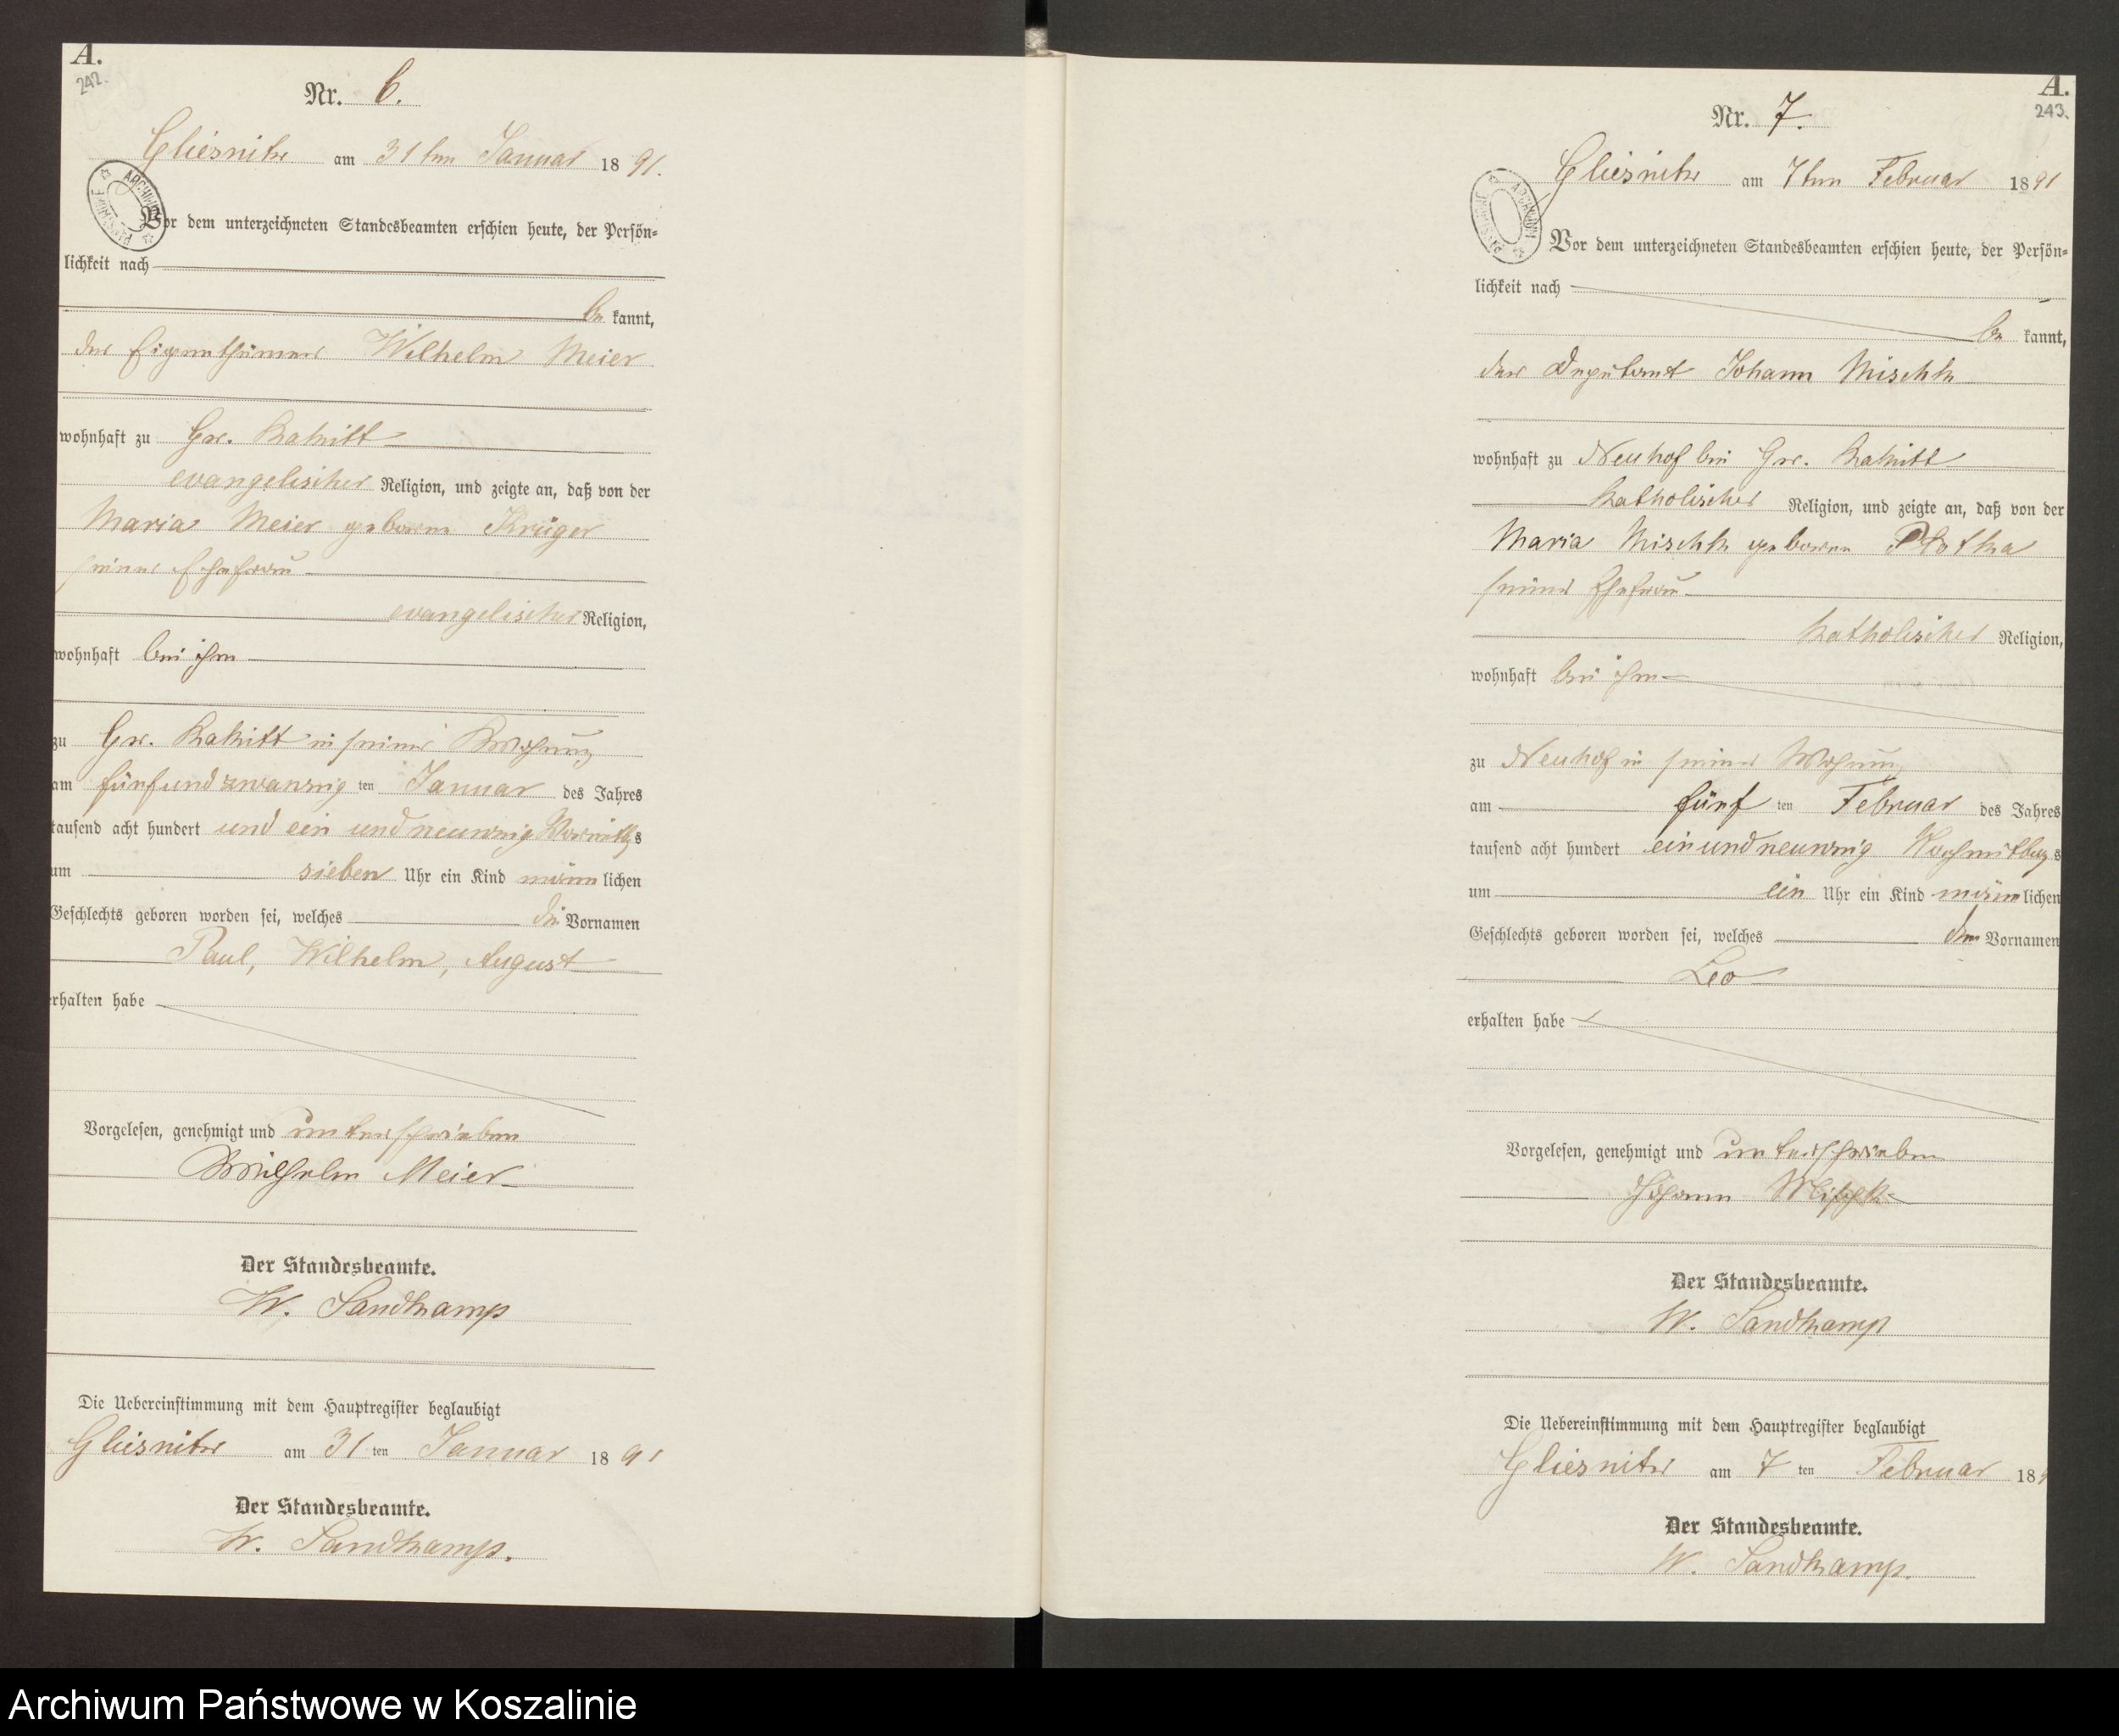 A.
242.
Nr. 6.
Gliesnitz am 31ten Januar 1891.
Vor dem unterzeichneten Standesbeamten erschien heute, der Persön=
lichkeit nach
be kannt,
der Eigenthümer Wilhelm Meier
wohnhaft zu Gr. Rakitt
evangelischer Religion, und zeigte an, daß von der
Maria Meier geborne Krüger
seiner Ehefrau
evangelischer Religion,
wohnhaft bei ihm
zu Gr. Rakitt in seiner Wohnung
am fünfundzwanzig ten Januar des Jahres
tausend acht hundert und ein und neunzig Vormittags
um sieben Uhr ein Kind männlichen
Geschlechts geboren worden sei, welches die Vornamen
Paul, Wilhelm, August
erhalten habe
Vorgelesen, genehmigt und unterschrieben
Wilhelm Meier
Der Standesbeamte.
W. Sandkamp
Die Uebereinstimmung mit dem Hauptregister beglaubigt
Gliesnitz am 31 ten Januar 1891
Der Standesbeamte.
W. Sandkamp.
A.
243.
Nr. 7.
Gliesnitz am 7ten Februar 1891
Vor dem unterzeichneten Standesbeamten erschien heute, der Persön=
lichkeit nach
be kannt,
der Deputant Johann Mischk
wohnhaft zu Neuhof bei Gr. Rakitt
katholischer Religion, und zeigte an, daß von der
Maria Mischk geborne
seiner Ehefrau
katholischer Religion,
wohnhaft bei ihm
zu Neuhof in seiner Wohnung
am fünf ten Februar des Jahres
tausend acht hundert ein und neunzig Nachmittags
um ein Uhr ein Kind männlichen
Geschlechts geboren worden sei, welches den Vornamen
Leo
erhalten habe
Vorgelesen, genehmigt und unterschrieben
Johann Mischk
Der Standesbeamte.
W. Sandkamp
Die Uebereinstimmung mit dem Hauptregister beglaubigt
Gliesnitz am 7 ten Februar 189
Der Standesbeamte.
W. Sandkamp.
Archiwum Państwowe w Koszalinie